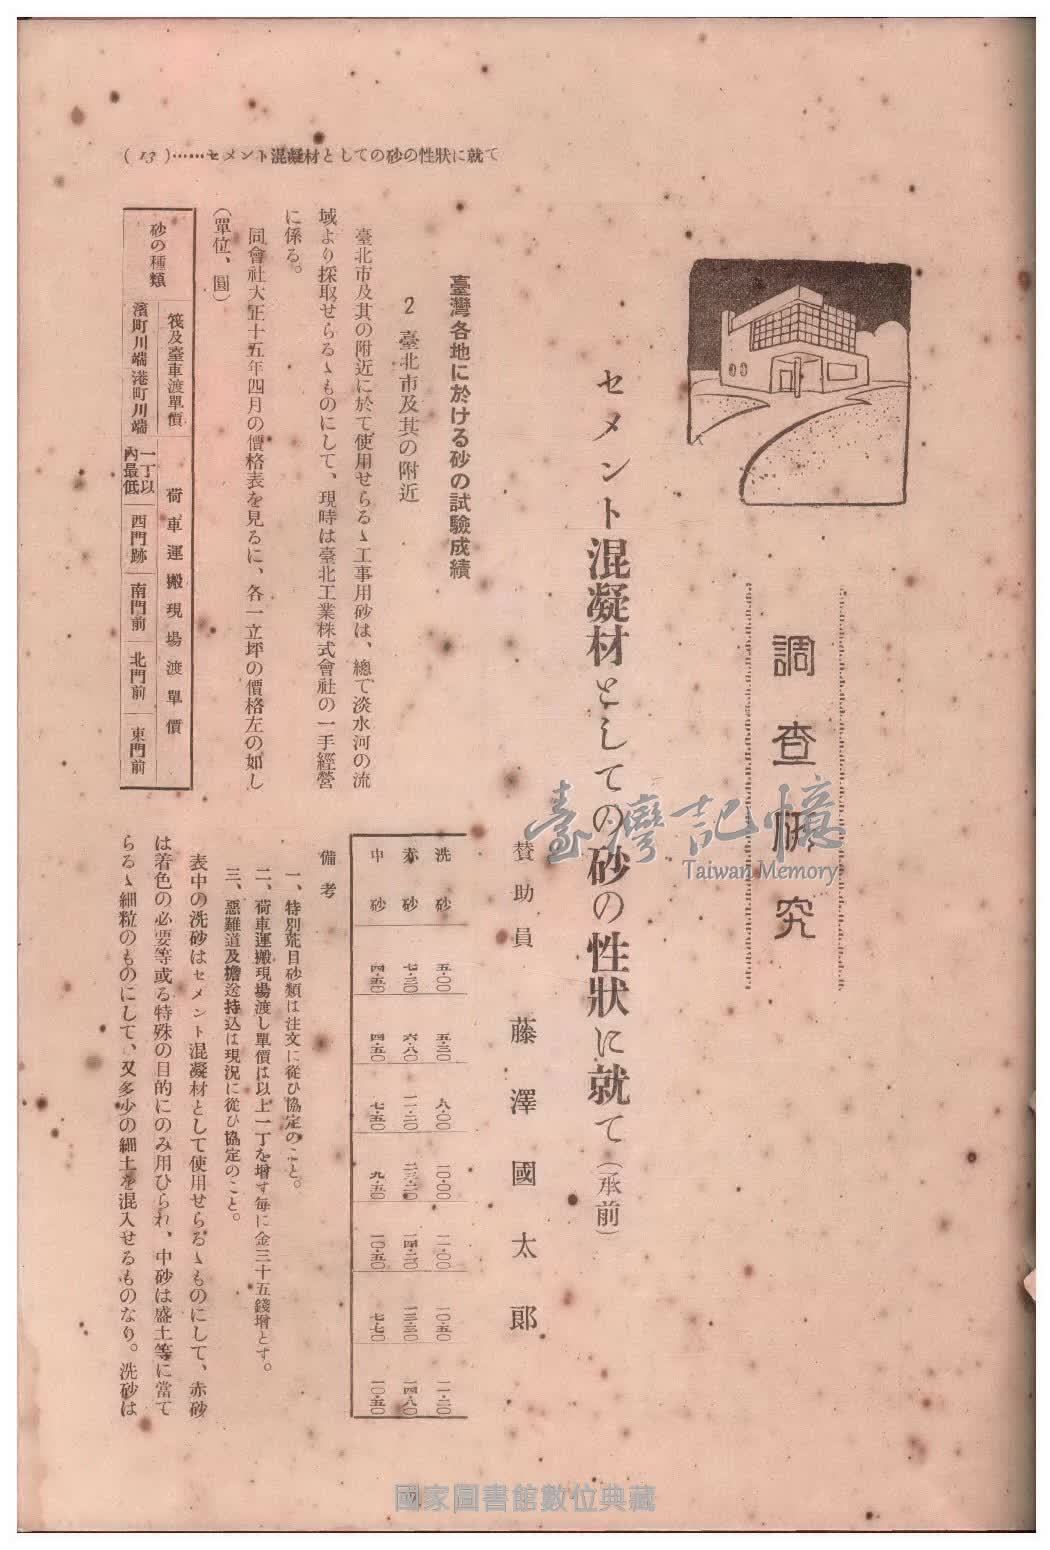 (13)……セメント混凝材としての砂の性狀に就て
調查研究
セメント混凝材としての砂の性狀に就て(承前)
贊助員 藤澤國太郞
臺灣各地に於ける砂の試驗成績
2 臺北市及其の附近
臺北市及其の附近に於て使用せらるゝ工事用砂は、總て淡水河の流
域より採取せらるゝものにして、現時は臺北工業株式會社の一手經營
に係る。
同會社大正十五年四月の價格表を見るに、各一立坪の價格左の如し
(單位、圓)
砂の種類
筏及臺車渡單價
荷車運搬現場渡單價
濱町川端 港町川端 一丁以內最低 西門跡 南門前 北門前 東門前
洗砂 五・〇〇 五・三〇 八・〇〇 一〇・〇〇 一一・〇〇 一〇・五〇 一一・二〇
赤砂 七・三〇 六・八〇 一一・二〇 一三・二〇 一四・二〇 一三・三〇 一四・八〇
中砂 四・五〇 四・五〇 七・五〇 九・五〇 一〇・五〇 七・七〇 一〇・五〇
備考
一、特別荒目砂類は注文に從ひ協定のこと。
二、荷車運搬現場渡し單價は以上一丁を增す每に金三十五錢增とす。
三、惡難道及擔送持込は現況に從ひ協定のこと。
表中の洗砂はセメント混凝材として使用せらるゝものにして、赤砂
は着色の必要等或る特殊の目的にのみ用ひられ、中砂は盛土等に當て
らるゝ細粒のものにして、又多少の細土を混入せるものなり。洗砂は
臺灣記憶
Taiwan Memory
國家圖書館數位典藏